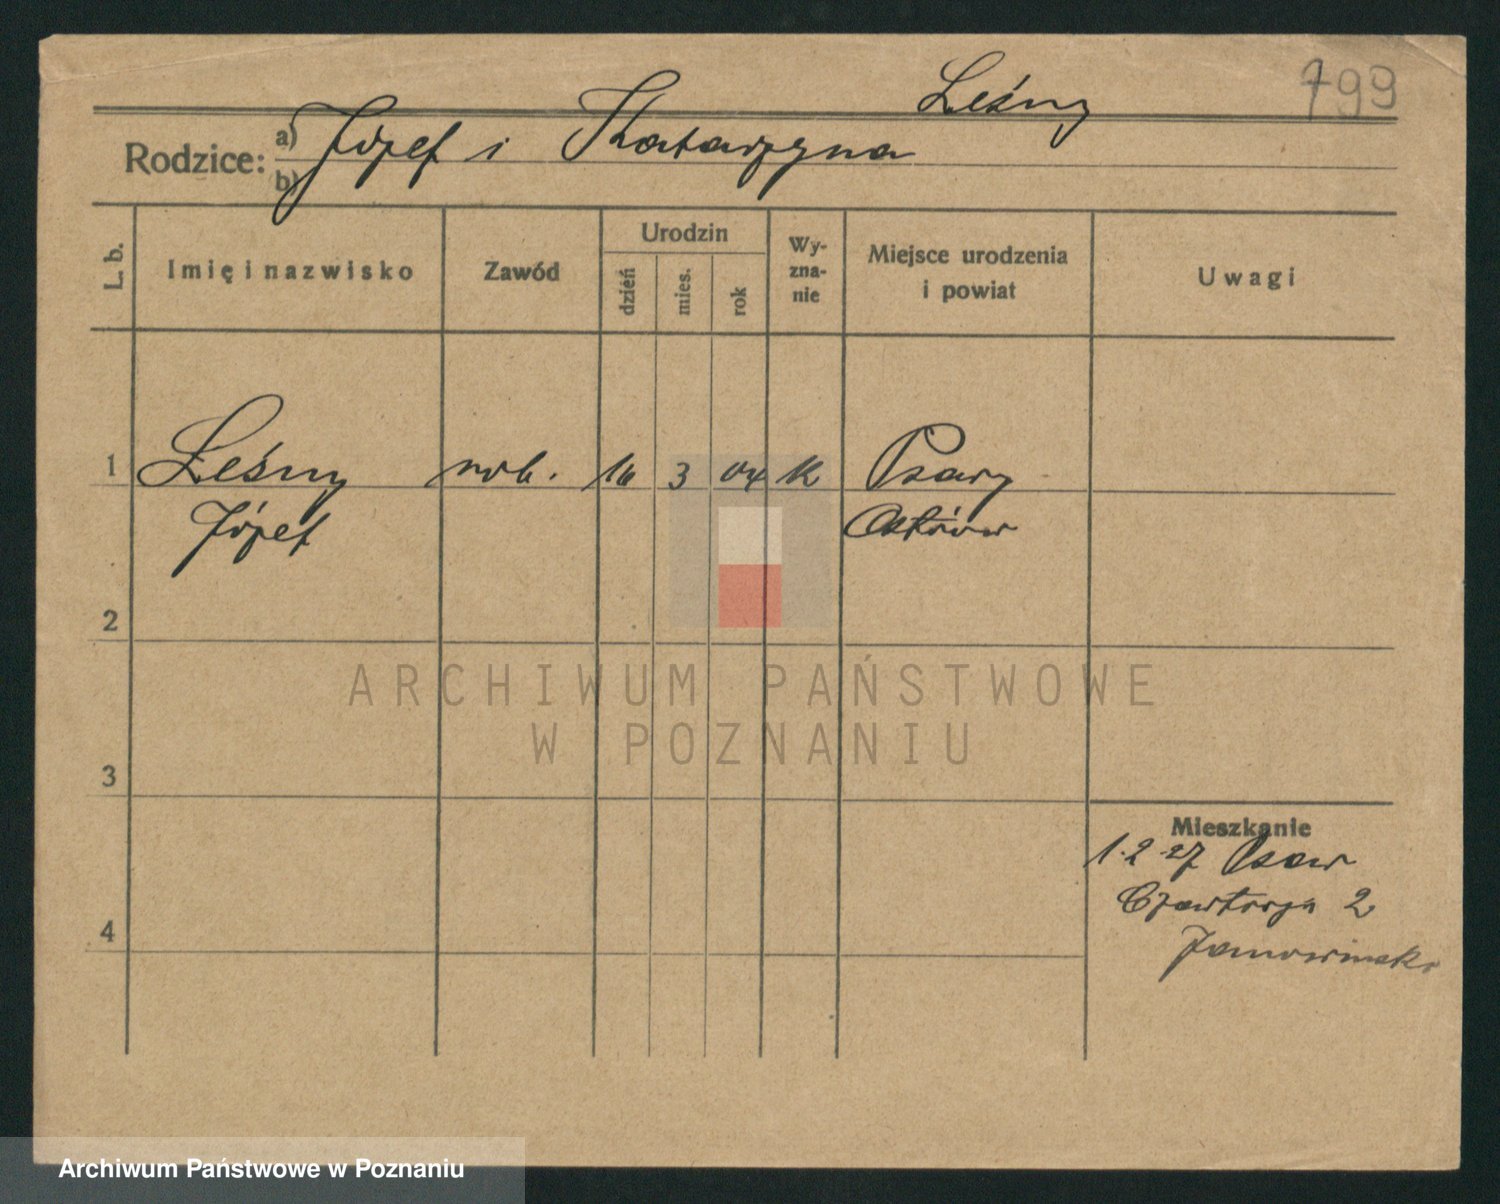 Leśny
799
Rodzice: a) Józef i Katarzyna
b)
L. b.
Imię i nazwisko
Zawód
Urodzin
dzień
mies.
rok
Wy-
zna-
nie
Miejsce urodzenia
i powiat
Uwagi
1 Leśny rob. 16 3 04 K Psary
Józef Ostrów
2
3
4
Mieszkanie
1.2.27
2
ARCHIWUM PAŃSTWOWE
W POZNANIU
Archiwum Państwowe w Poznaniu